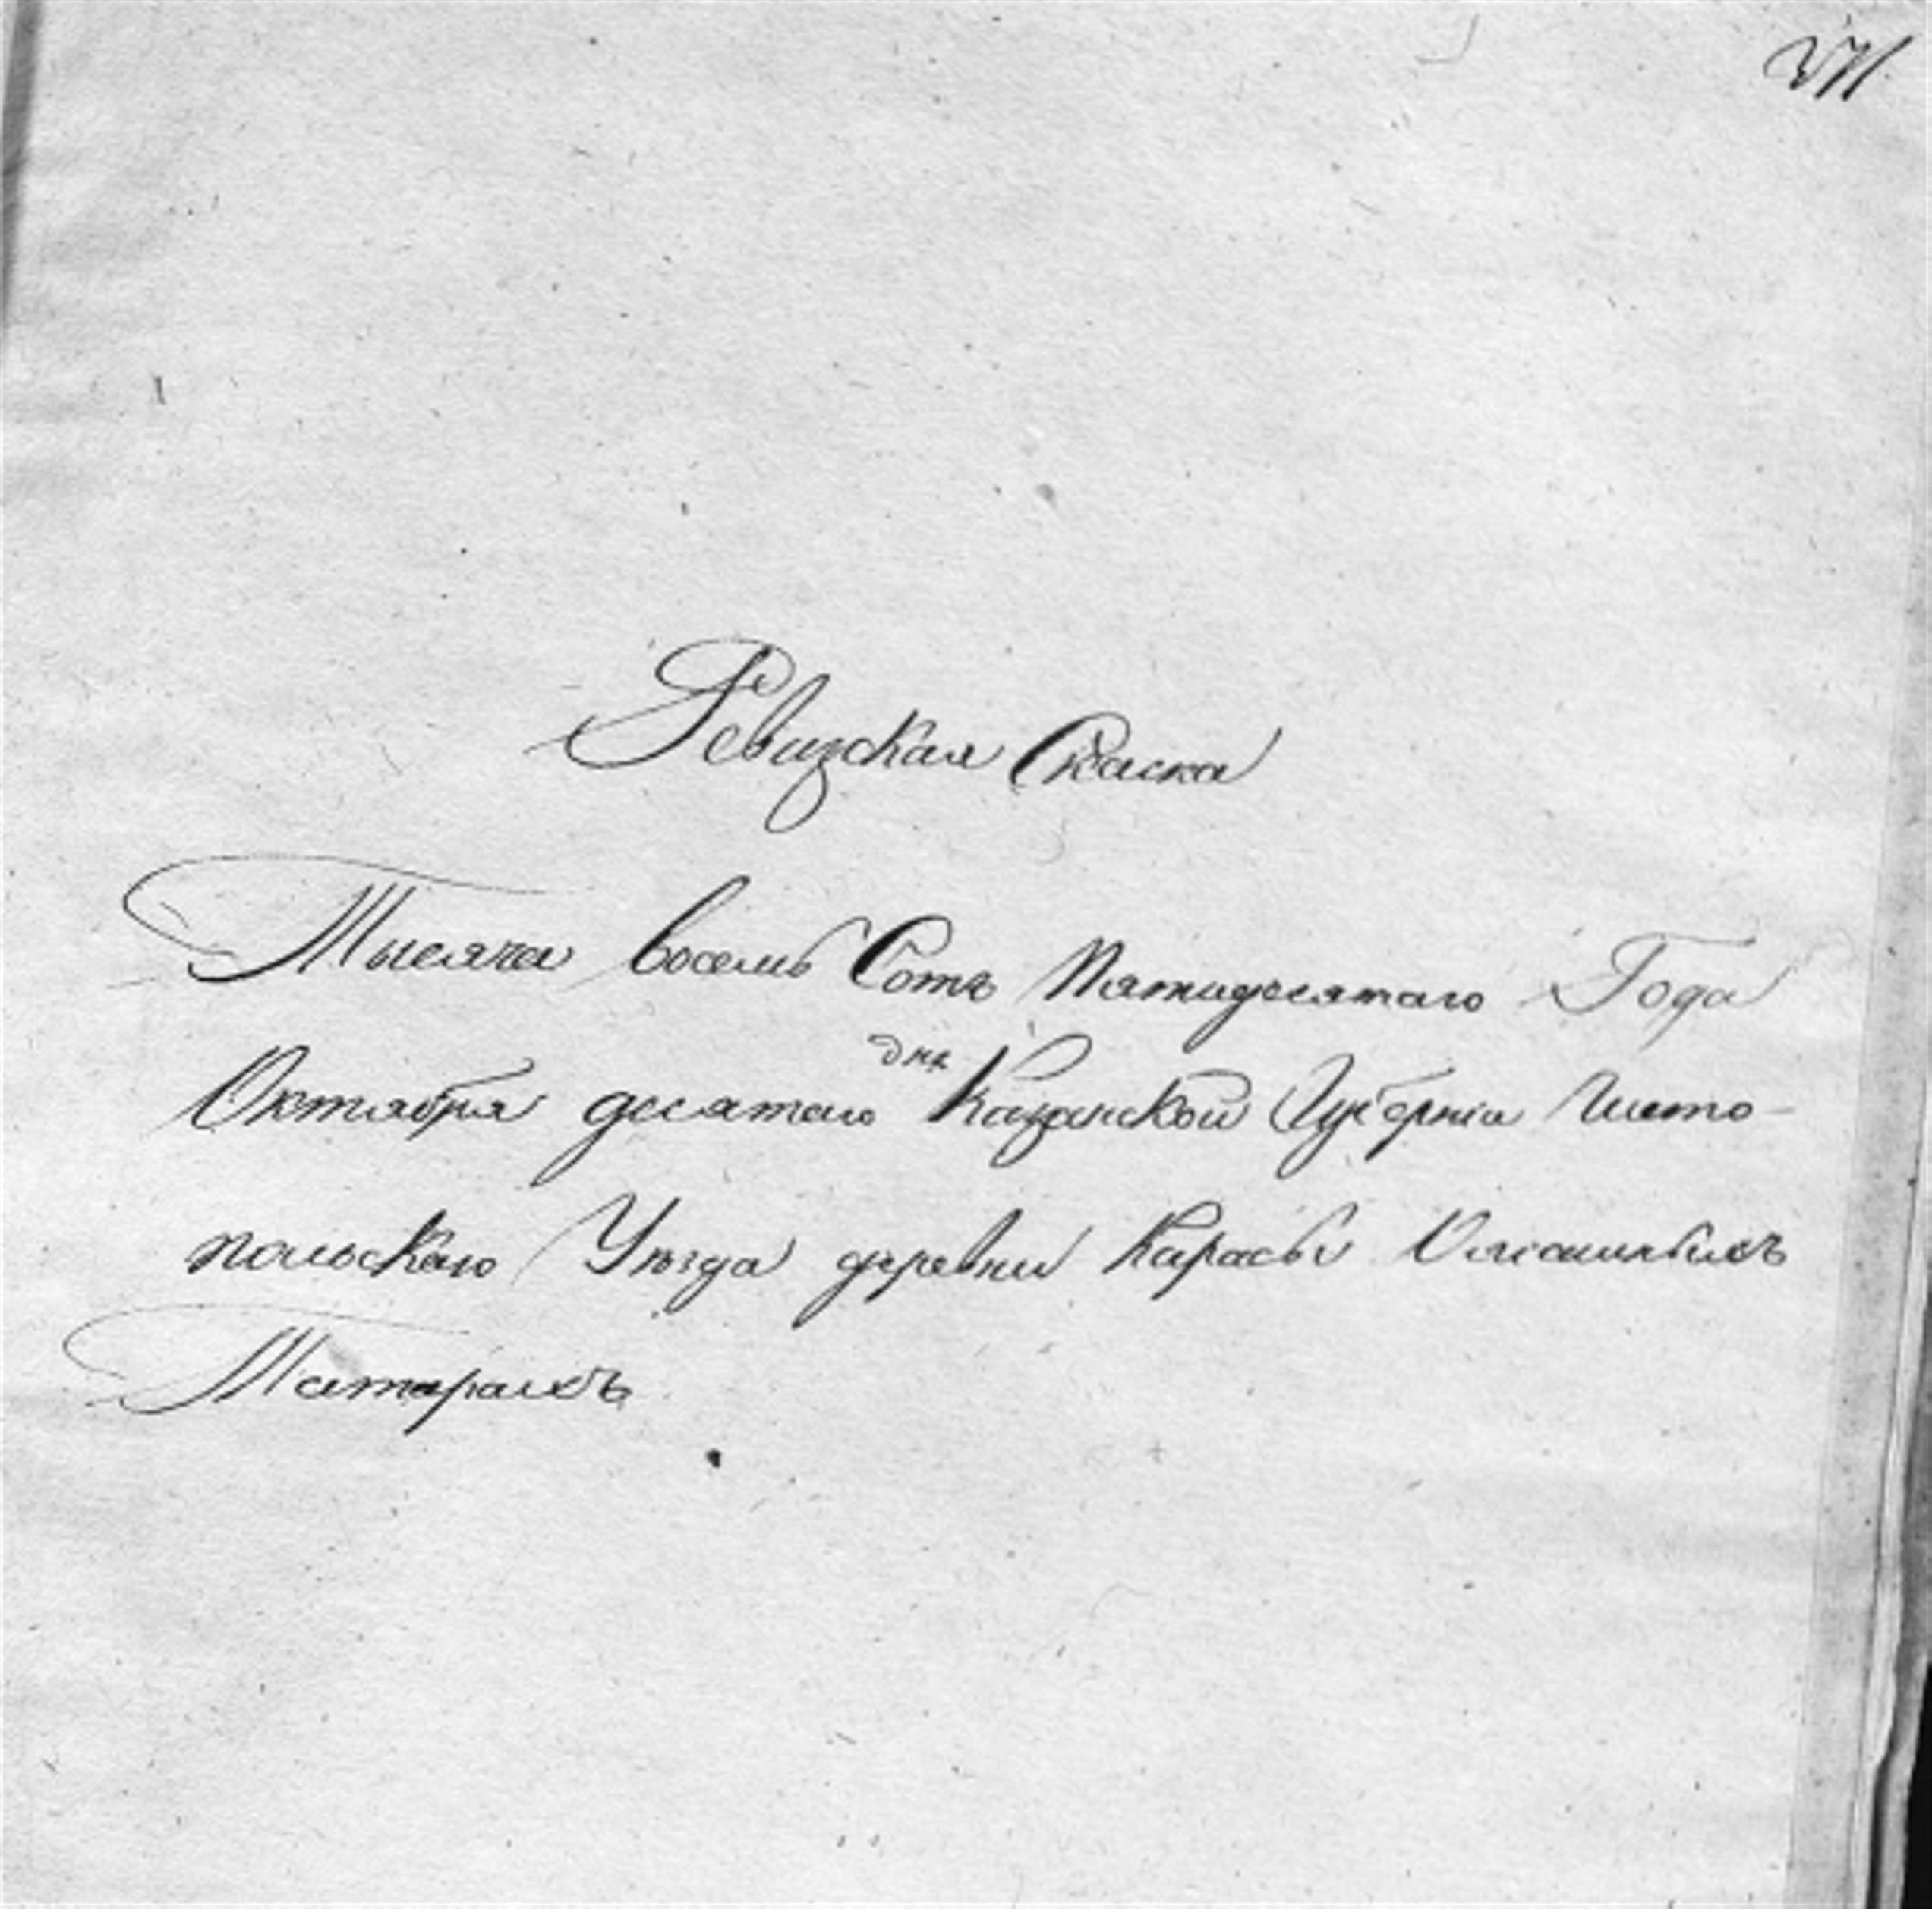 Ревизская Скаска
Тысяча восемь Сотъ Пятидесятаго Года
Октября десятаго дня Казанской Губерніи Чисто-
польскаго Уѣзда деревни Карасы о
Татарахъ